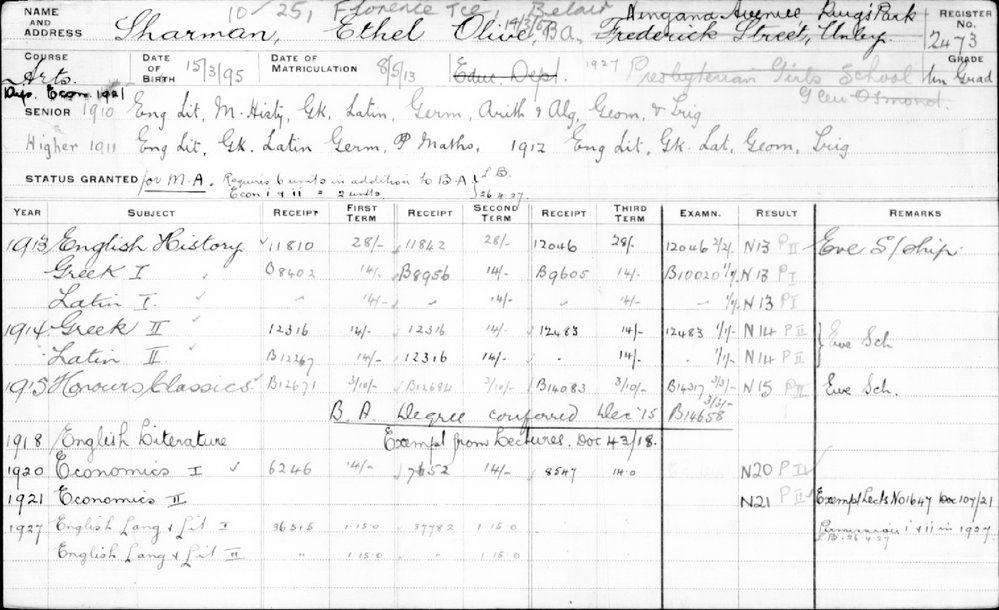 NAME AND ADDRESS 10/25, Florence Tce, Belair
Sharman, Ethel Olive, B.A. 14/3/07 Ningana Avenue, King's Park
Frederick Street, Unley.
REGISTER NO. 2473
COURSE Arts. DATE OF BIRTH 15/3/95 DATE OF MATRICULATION 8/5/13 Educ Dept. 1927 Presbyterian Girls School GRADE Un Grad
Dip. Econ. 1921 Glen Osmond.
SENIOR 1910 Eng Lit, M. Histy, Gk, Latin, Germ, Arith & Alg, Geom, & Trig
Higher 1911 Eng Lit, Gk. Latin Germ, P Maths, 1912 Eng Lit, Gk. Lat, Geom, Trig
STATUS GRANTED for M.A. Requires 6 units in addition to B.A. } L.B.
Econ I & II = 2 units. 26.4.27.
YEAR SUBJECT RECEIPT FIRST TERM RECEIPT SECOND TERM RECEIPT THIRD TERM EXAMN. RESULT REMARKS
1913 English History 11810 28/- 11842 28/- 12046 28/- 12046 2/2/- N13 P II Eve S/ship.
Greek I B8402 14/- B8956 14/- B9605 14/- B10020 1/1/- N13 P I
Latin I " 14/- " 14/- " 14/- " 1/1/- N13 P I
1914 Greek II 12316 14/- 12316 14/- 12483 14/- 12483 1/1/- N14 P II } Eve Sch
Latin II B12267 14/- 12316 14/- " 14/- " 1/1/- N14 P II
1915 Honours Classics B12671 3/10/- B12684 3/10/- B14083 3/10/- B14317 3/3/- N15 P II Eve Sch.
B.A. Degree conferred Dec '15 3/3/- B14658
1918 English Literature Exempt from Lectures. Doc 43/18.
1920 Economics I 6246 14/- 7652 14/- 8547 14.0 N20 P II
1921 Economics II N21 P II Exempt Lects No 1647 Doc 107/21
1927 English Lang & Lit I 36515 1.15.0 37782 1.15.0 Permission I & II in 1927.
English Lang & Lit II " 1.15.0 " 1.15.0 L.B. 26.4.27